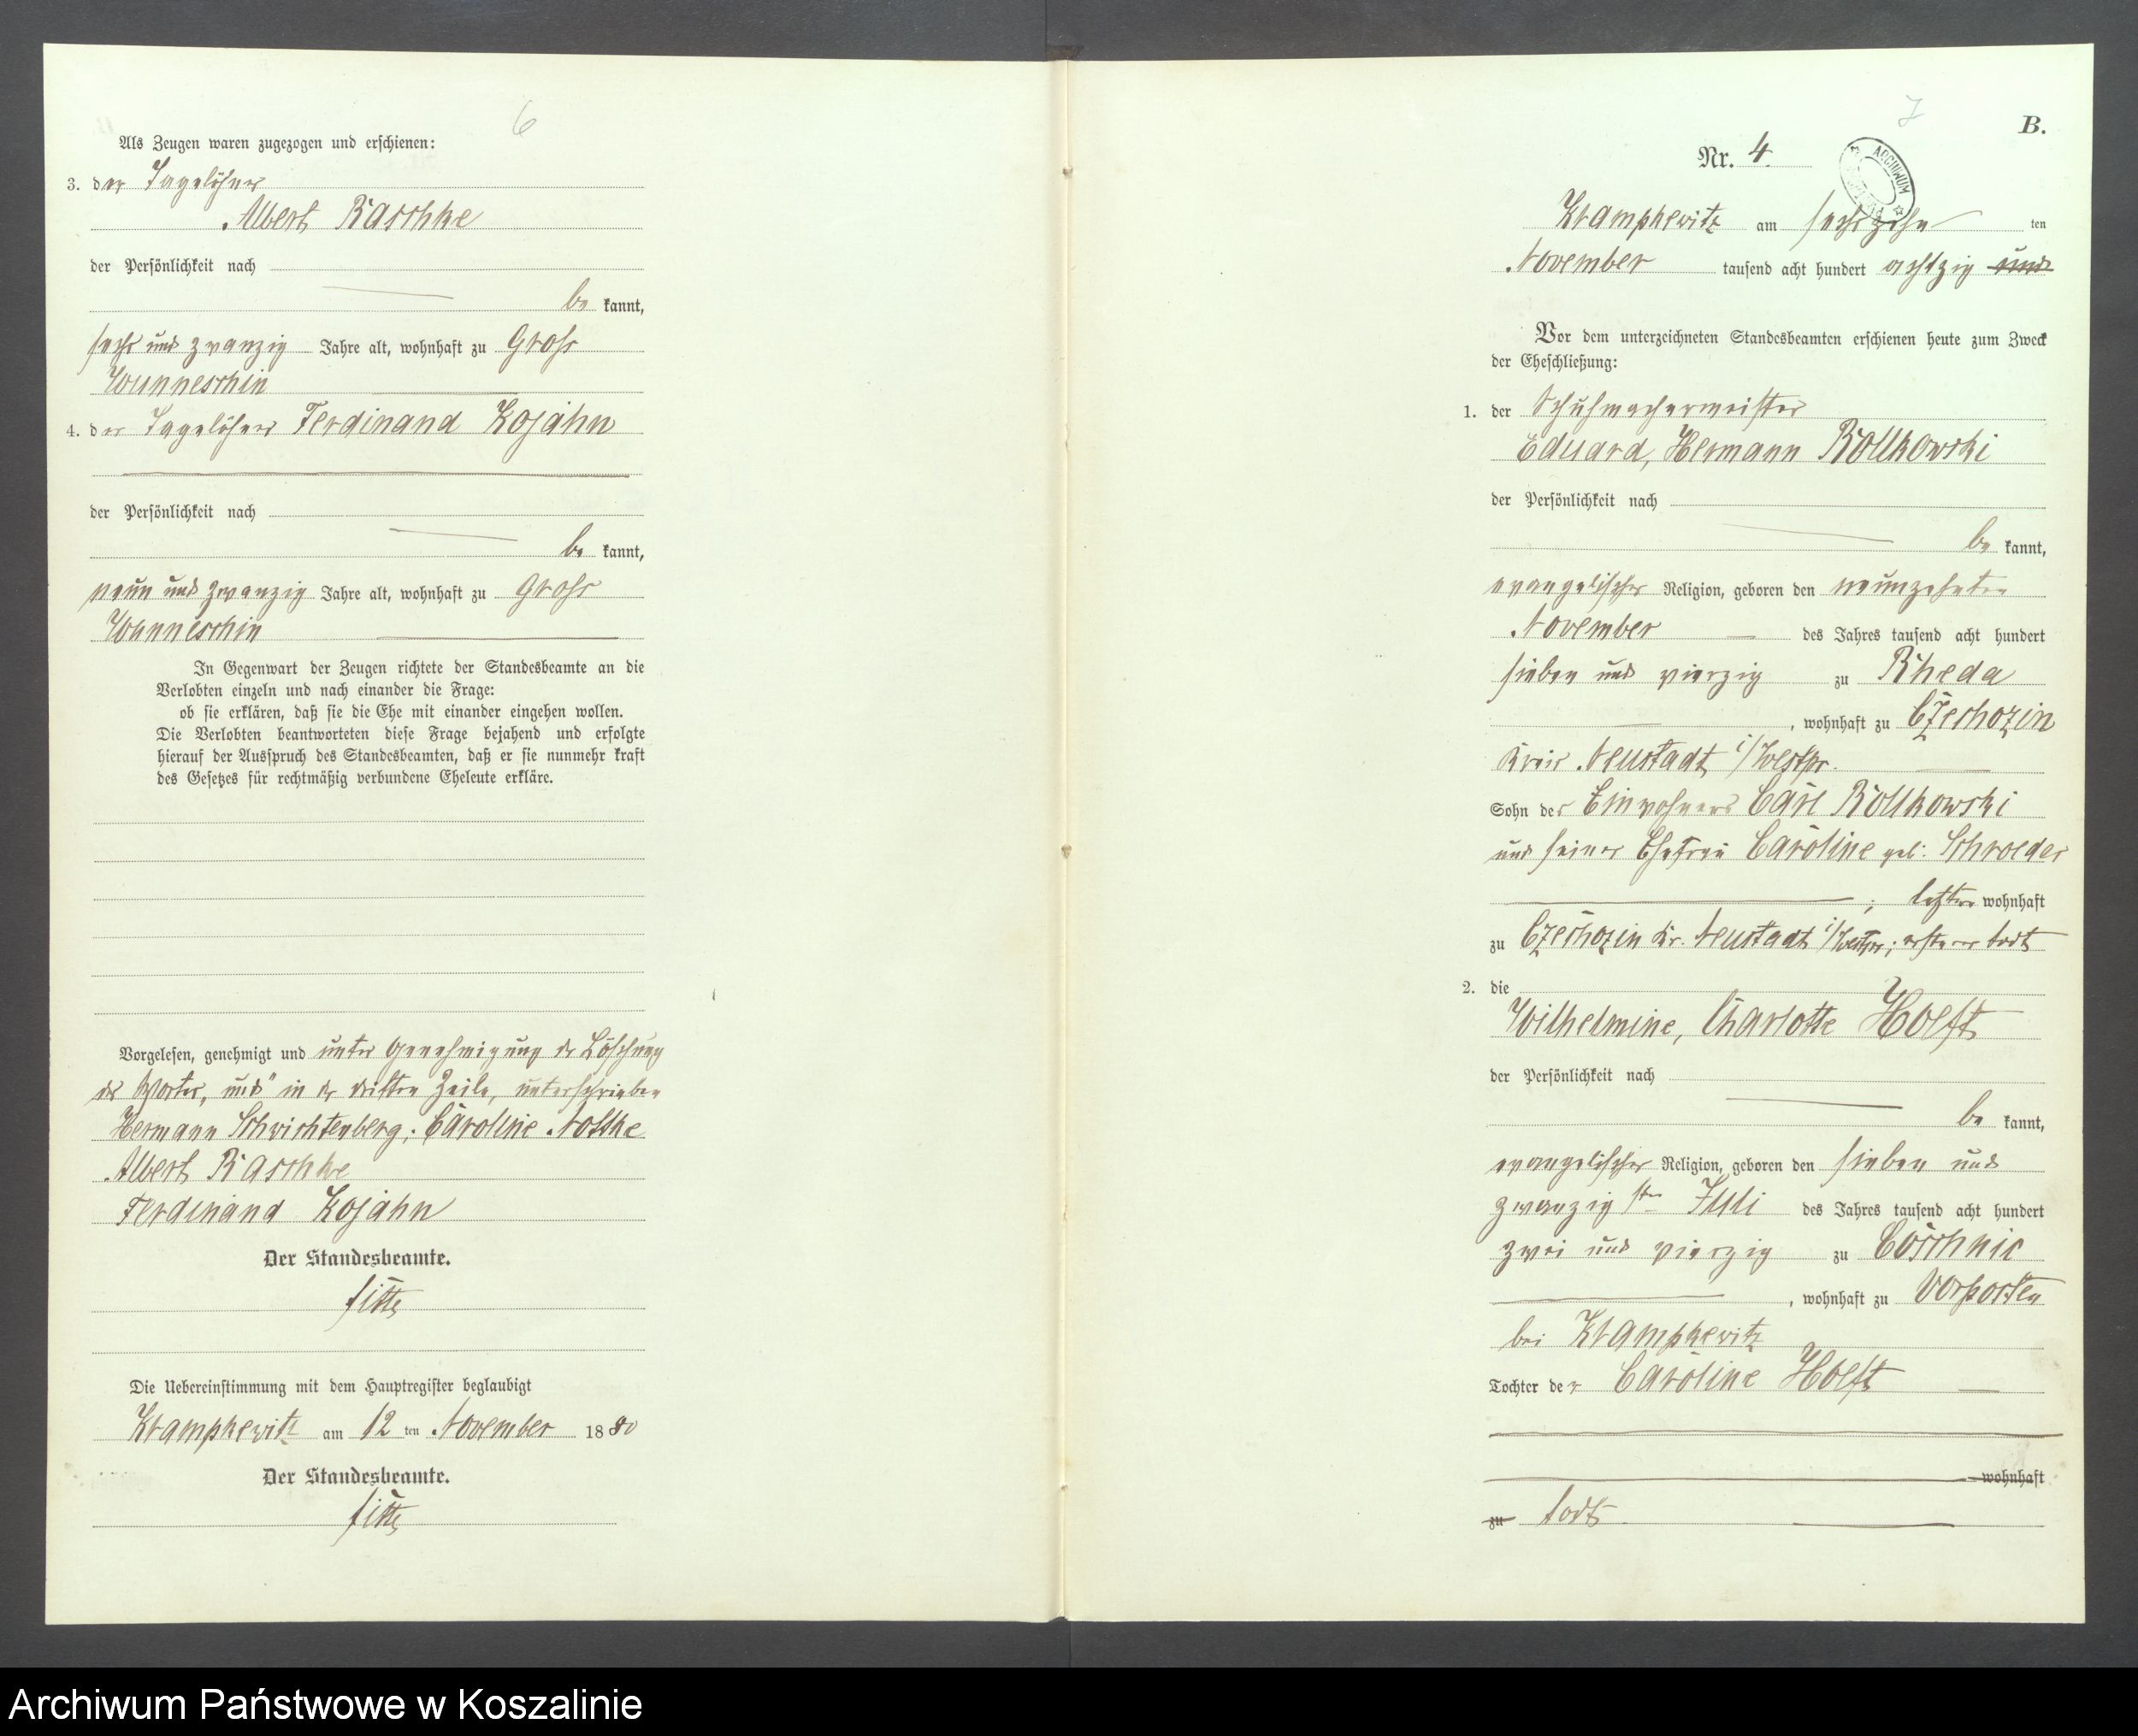 6
Als Zeugen waren zugezogen und erschienen:
3. der Tagelöhner
Albert Raschke
der Persönlichkeit nach
be kannt,
sechs und zwanzig Jahre alt, wohnhaft zu Gross
Wunneschin
4. der Tagelöhner Ferdinand Kojahn
der Persönlichkeit nach
be kannt,
neun und zwanzig Jahre alt, wohnhaft zu Gross
Wunneschin
In Gegenwart der Zeugen richtete der Standesbeamte an die
Verlobten einzeln und nach einander die Frage:
ob sie erklären, daß sie die Ehe mit einander eingehen wollen.
Die Verlobten beantworteten diese Frage bejahend und erfolgte
hierauf der Ausspruch des Standesbeamten, daß er sie nunmehr kraft
des Gesetzes für rechtmäßig verbundene Eheleute erkläre.
Vorgelesen, genehmigt und unter Genehmigung der Löschung
des Wortes „und" in der dritten Zeile, unterschrieben
Hermann Schwichtenberg; Caroline Noffke
Albert Raschke
Ferdinand Kojahn
Der Standesbeamte.
Die Uebereinstimmung mit dem Hauptregister beglaubigt
Krampkewitz am 12 ten November 1880
Der Standesbeamte.
7
B.
Nr. 4.
ARCHIWUM
Krampkewitz am sechszehn ten
November tausend acht hundert achtzig und
Vor dem unterzeichneten Standesbeamten erschienen heute zum Zweck
der Eheschließung:
1. der Schuhmachermeister
Eduard, Hermann Rollkowski
der Persönlichkeit nach
be kannt,
evangelischer Religion, geboren den neunzehnten
November des Jahres tausend acht hundert
sieben und vierzig zu Rheda
, wohnhaft zu Czechozin
Kreis Neustadt i/Westpr.
Sohn des Einwohners Carl Rollkowski
und seiner Ehefrau Caroline geb: Schroeder
; letztere wohnhaft
zu Czechozin Kr. Neustadt i/Westpr; ersterer todt
2. die
Wilhelmine, Charlotte Hoeft
der Persönlichkeit nach
be kannt,
evangelischer Religion, geboren den sieben und
zwanzig sten Juli des Jahres tausend acht hundert
zwei und vierzig zu Coschnic
, wohnhaft zu Vorposten
bei Krampkewitz
Tochter der Caroline Hoeft
wohnhaft
zu todt
Archiwum Państwowe w Koszalinie